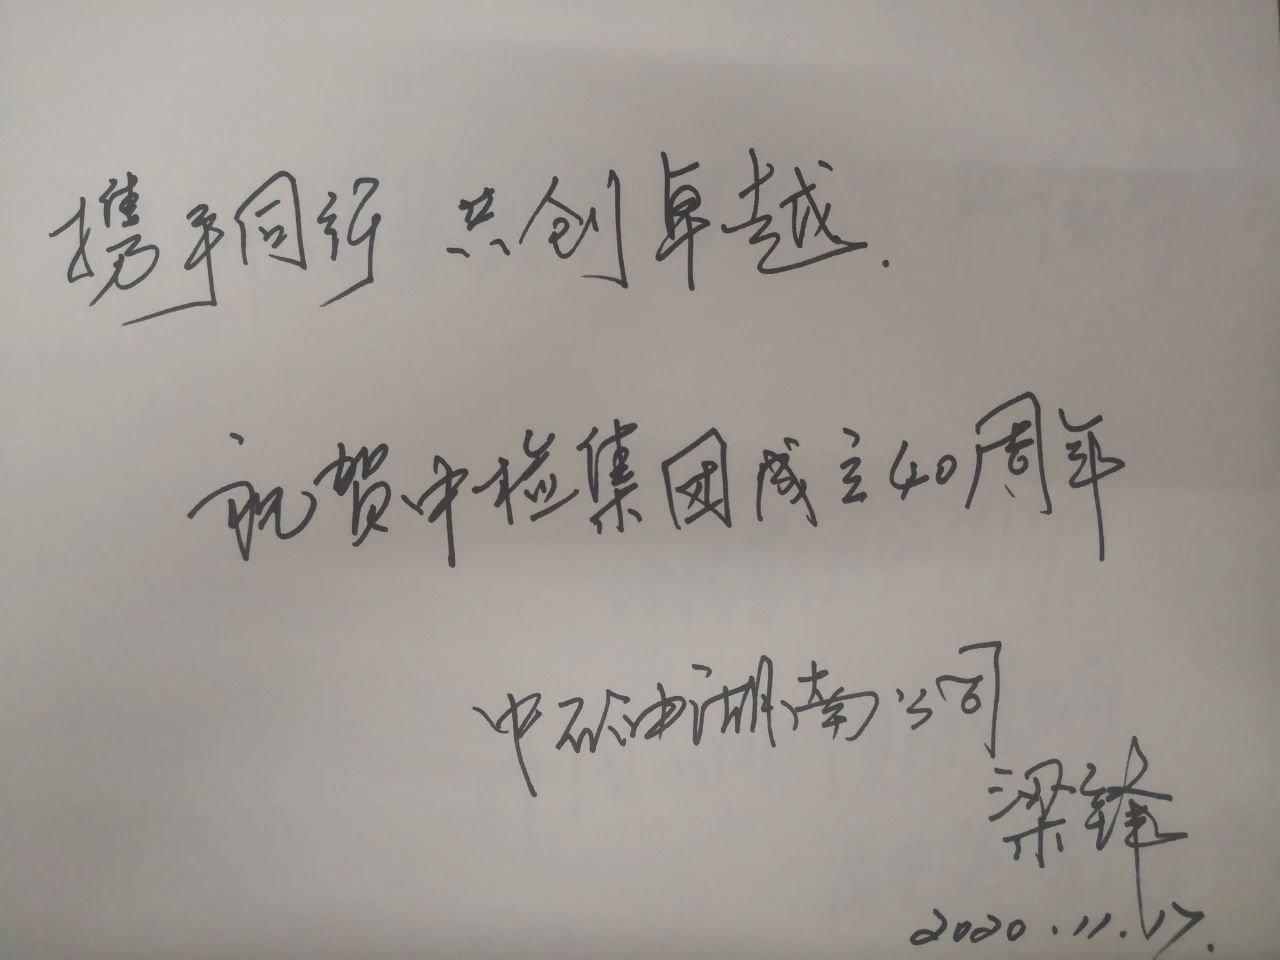 携手同行 共创卓越.
祝贺中检集团成立40周年
中石油湖南公司
梁锋
2020.11.17.